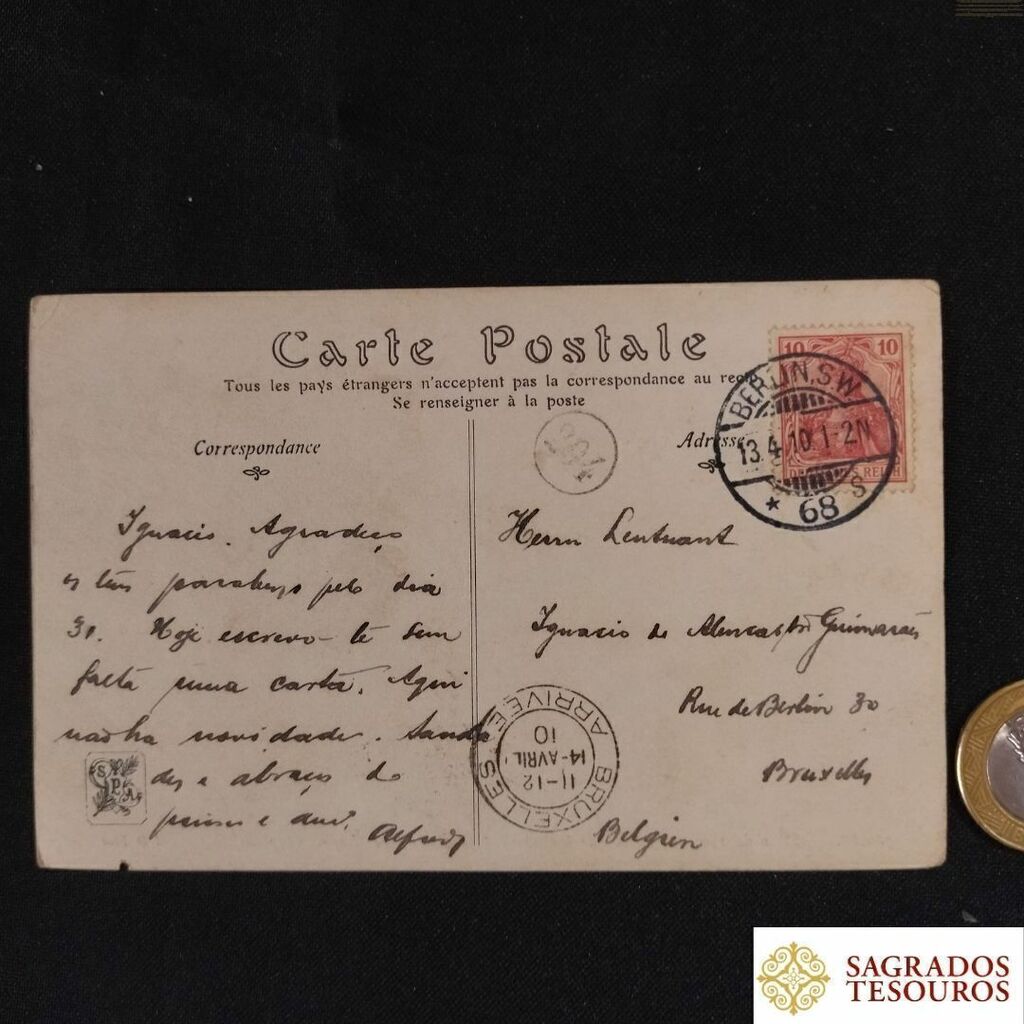 Carte Postale
Tous les pays étrangers n'acceptent pas la correspondance au recto
Se renseigner à la poste
Correspondance
Adresse
10 10
DEUTSCHES REICH
BERLIN.SW
13.4.10.1-2N
* 68 S
Ignacio. Agradeço
os teus parabens pelo dia
31. Hoje escrevo-te sem
falta uma carta. Aqui
não ha novidade. Sauda
des e abraço do
primo e am.º
Alfredo
Herrn Leutnant
Ignacio de Alencastro Guimarães
Rue de Berlin 30
Bruxelles
Belgien
BRUXELLES ARRIVEE
11-12
14-AVRIL
10
SPA
SAGRADOS
TESOUROS